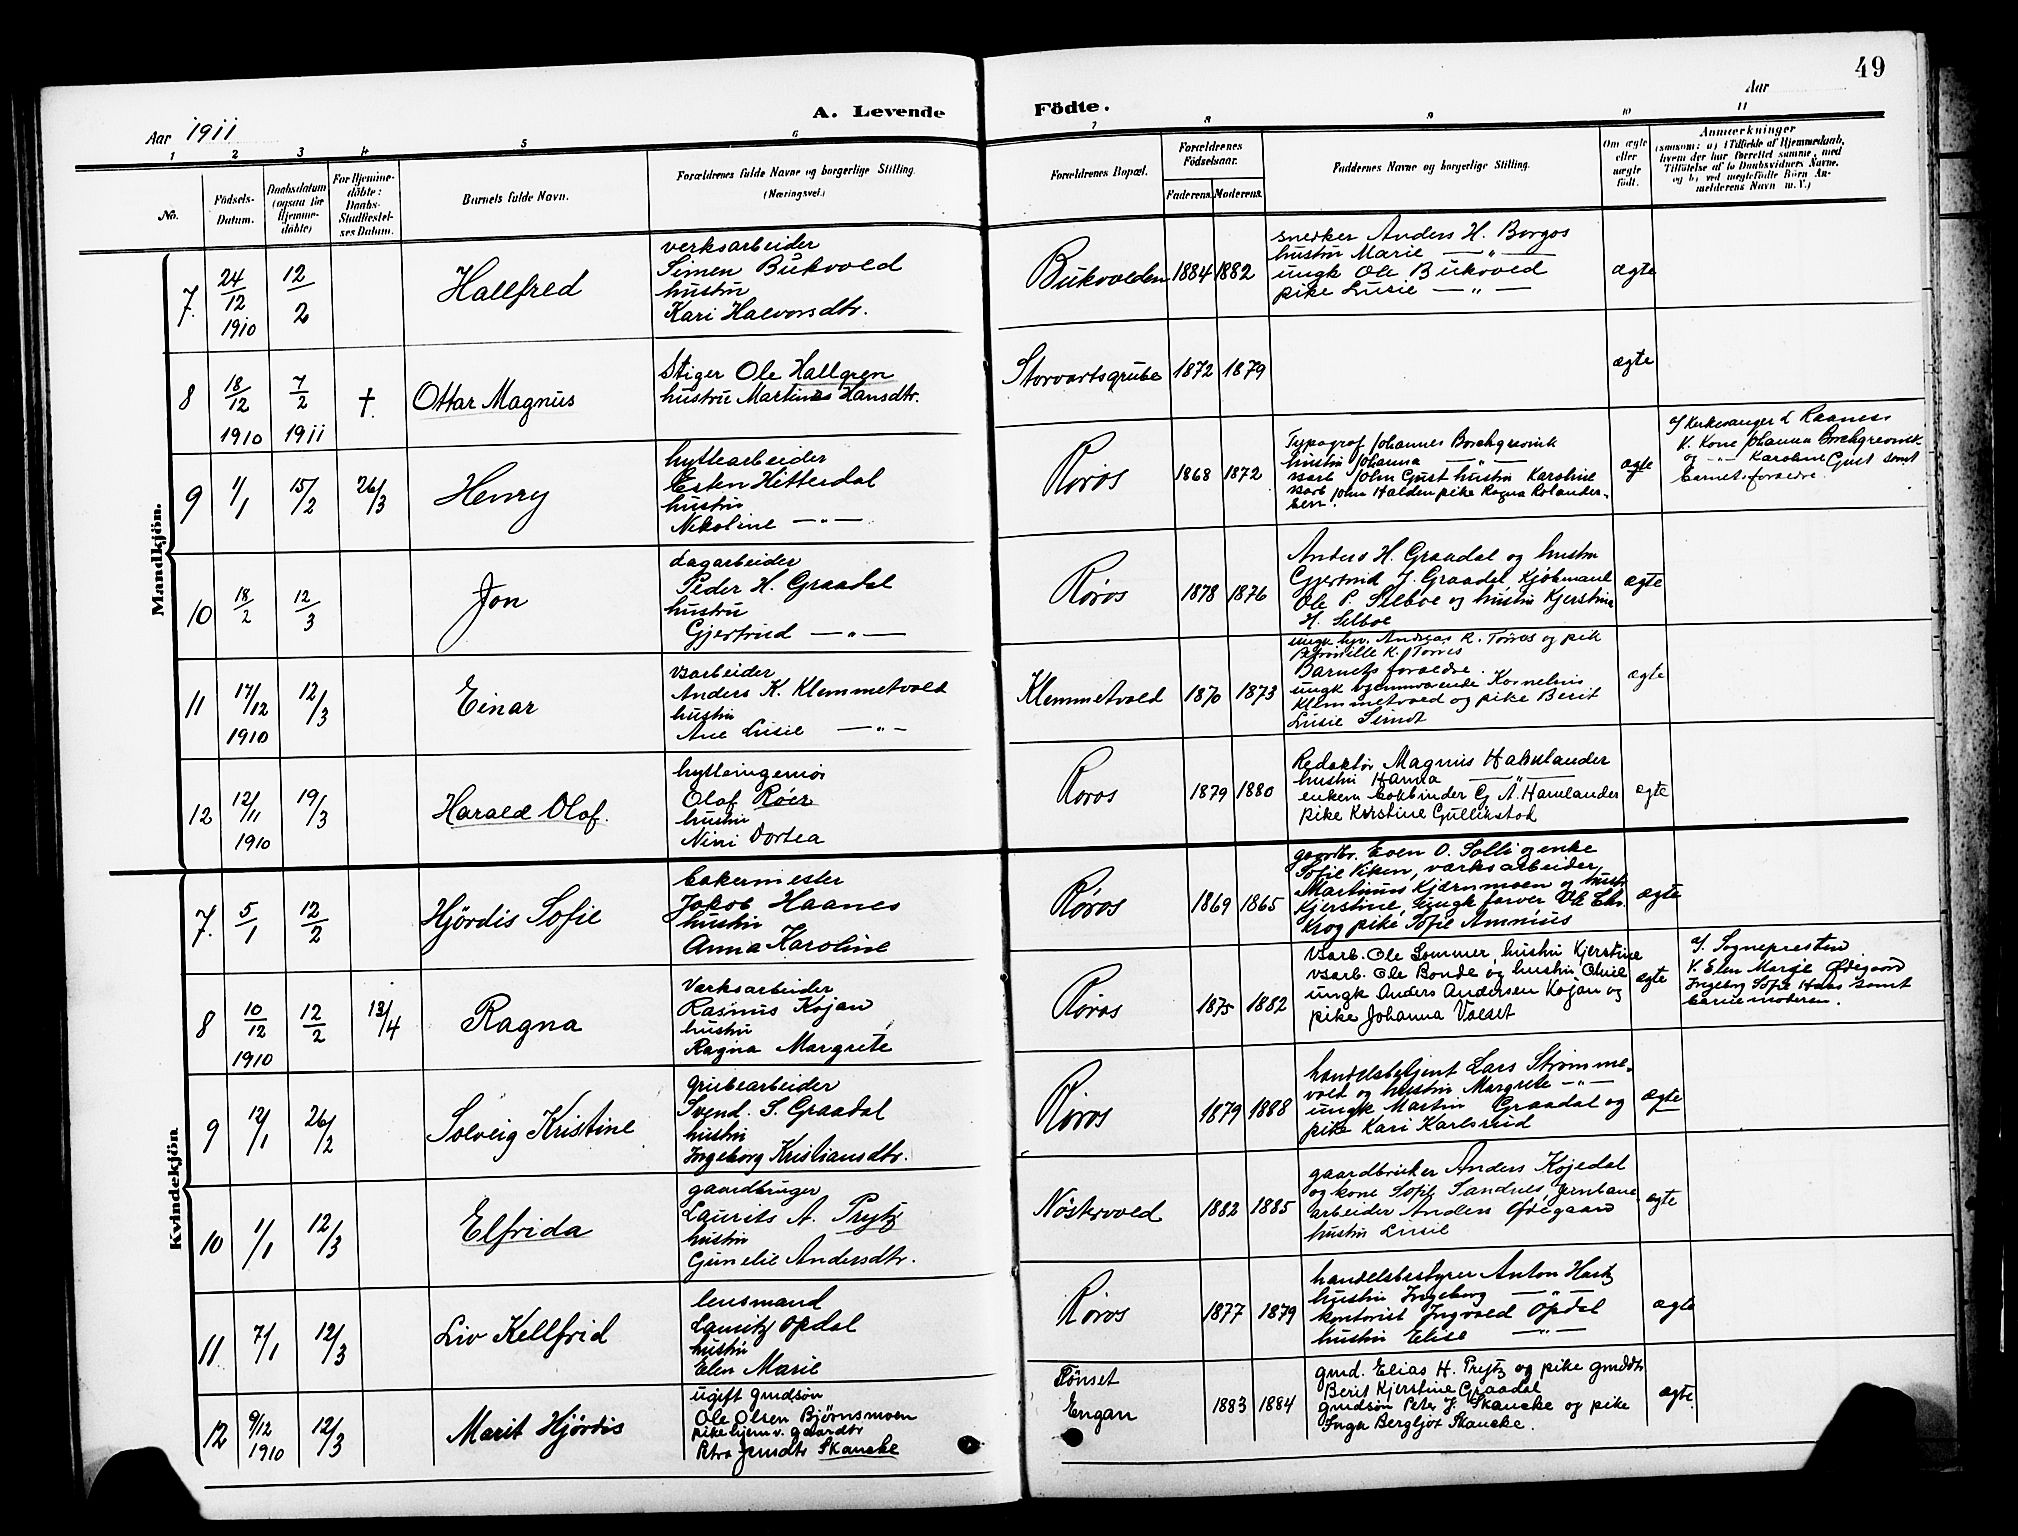 49
A. Levende Födte.
Aar 1911
Aar
1 2 3 4 5 6 7 8 9 10 11
No.
Födsels-Datum.
Daabsdatum (ogsaa for Hjemmedöbte)
For Hjemmedöbte: Daabs-Stadfæstelses Datum.
Barnets fulde Navn.
Forældrenes fulde Navne og borgerlige Stilling. (Næringsvei.)
Forældrenes Bopæl.
Forældrenes Födselsaar.
Faderens. Moderens.
Faddernes Navne og borgerlige Stilling.
Om ægte eller uægte födt.
Anmærkninger
(saasom: a) i Tilfælde af Hjemmedaab, hvem der har forrettet samme, med Tilföielse af to Daabsvidners Navne, og b) ved uægtefödte Börn Anmelderens Navn m. V.)
Mandkjön.
7. 24/12 1910 12/2 Hallfred
verksarbeider
Simen Bukvold
hustru
Kari Halvorsdtr.
Bukvolden 1884 1882
snedker Anders H. Borgos
hustru Marie —"—
ungk Ole Bukvold
pike Lusie —"—
ægte
8 18/12 1910 7/2 1911 †. Ottar Magnus
Stiger Ole Hallgren
hustru Martines Hansdtr.
Storvartsgrube 1872 1879
ægte
9 1/1 15/2 26/3 Henry
hyttearbeider
Esten Hitterdal
hustru
Nikoline —"—
Røros 1868 1872
Typograf Johannes Borchgrevink
hustru Johanna —"—
varb John Gjust hustru Karoline
varb John Halden pike Ragna Rolandersen.
ægte
v/ Kirkesanger L Raaness
V. Kone Johanna Borchgrevink
og —"— Karoline Gjust samt
barnets forældre.
10 18/2 12/3 Jon
dagarbeider
Peder H. Graadal
hustru
Gjertrud —"—
Røros 1878 1876
Anders H. Graadal og hustru
Gjertrud J. Graadal Kjöbmand
Ole P. Selboe og hustru Kjerstina
H. Selboe
ægte
11 17/12 1910 12/3 Einar
varbeider
Anders K. Klemmetvold
hustru
Ane Lusie —"—
Klemmetvold 1870 1873
ungk hjv. Andreas K. Torres og pik
Petronille K. Torres
Barnets forældre.
ungk hjemmværende Kornelius
Klemmetvold og pike Berit
Lusie Simdt
ægte
12 12/11 1910 19/3 Harald Olaf.
hytteingeniør
Olaf Røer
hustru
Nini Dortea
Røros 1879 1880
Redaktör Magnus Hamlander
hustru Hanna —"—
enkem bokbinder G. A. Hamlander
pike Kirstine Gullikstad
ægte
Kvindekjön
7. 5/1 12/2 Hjördis Sofie
bakermester
Jakob Haanes
hustru
Anna Karoline
Røros 1869 1865
gaardbr. Even O. Solli og enke
Sofie Viken, værksarbeider
Martinus Kjernmoen og hust
Kjerstine, ungk farver Ole Chr.
Krog pike Sofie Amnéus
ægte
8 10/12 1910 12/2 13/4 Ragna
Værksarbeider
Rasmus Kojan
hustru
Ragna Margrete
Røros 1875 1882
varb. Ole Sommer, hustru Kjerstine
varb. Ole Bonde og hustru Oline
ungk Anders Andersen Kojan og
pike Johanna Volset
ægte
v/. Sognepresten
V. Elen Marie Ødegaard
Ingeborg Sofie Haas samt
barnemoderen.
9 12/1 26/2 Solveig Kristine
grubearbeider
Svend. S. Graadal
hustru
Ingeborg Kristiansdtr.
Røros 1879 1888
handelsbetjent Lars Strømmevold og hustru Margrete —"—
ungk Martin Graadal og
pike Kari Karlsreid
ægte
10 1/1 12/3 Elfrida
gaardbruger
Laurits A. Prytz
hustru
Gunelie Andersdtr.
Nöstervold 1882 1885
gaardbruker Anders Kojedal
og kone Sofie Sandnes, jernbanearbeider Anders Ødegaard
hustru Lusie
ægte
11 7/1 12/3 Liv Kellfrid
lensmand
Lauritz Opdal
hustru
Elen Marie
Røros 1877 1879
handelsbestyrer Anton Hartz
hustru Ingeborg —"—
kontorist Ingvald Opdal
hustru Elise —"—
ægte
12 9/12 1910 12/3 Marit Hjördis
ugift gmdsön
Ole Olsen Bjørnsmoen
pike hjem v. gaardtr
Petra Jensdtr Skancke
Tönset
Engan
1883 1884
gmd. Elias H. Prytz og pike gmddtr
Berit Kjerstine Graadal
gmdsön Peter J. Skancke og pike
Inga Bergljot Skancke.
ægte